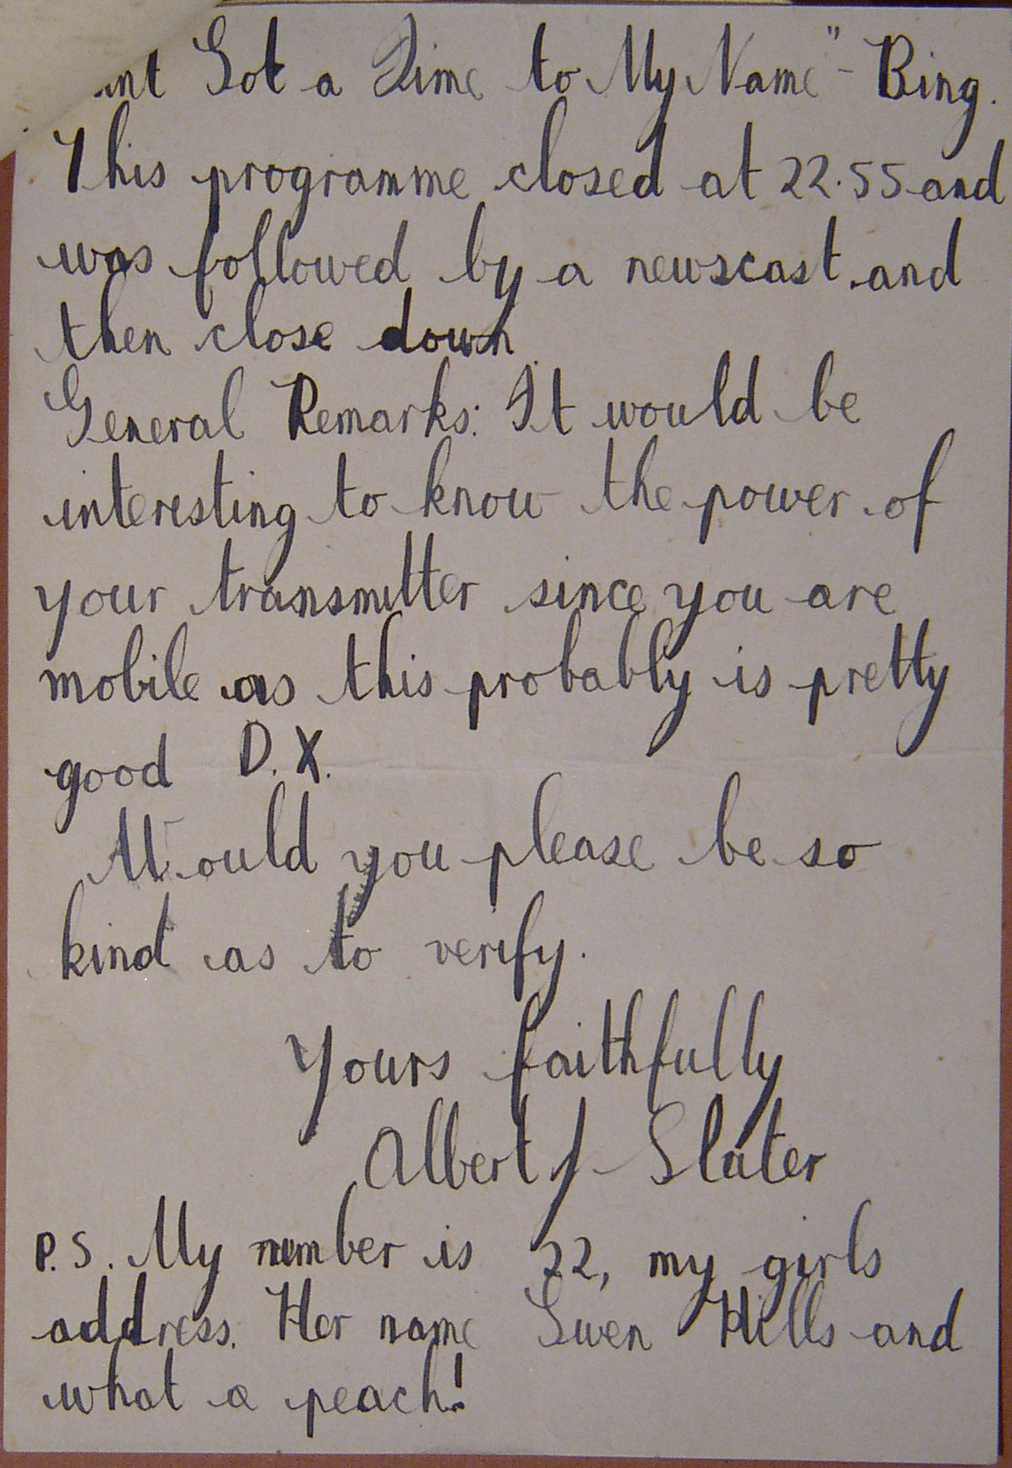 Got a Dime to My Name" - Bing.
This programme closed at 22.55 and
was followed by a newscast and
then close down.
General Remarks: It would be
interesting to know the power of
your transmitter since you are
mobile as this probably is pretty
good D.X.
Would you please be so
kind as to verify.
Yours faithfully
Albert J Slater
P.S. My number is 22, my girls
address. Her name Gwen Hills and
what a peach!